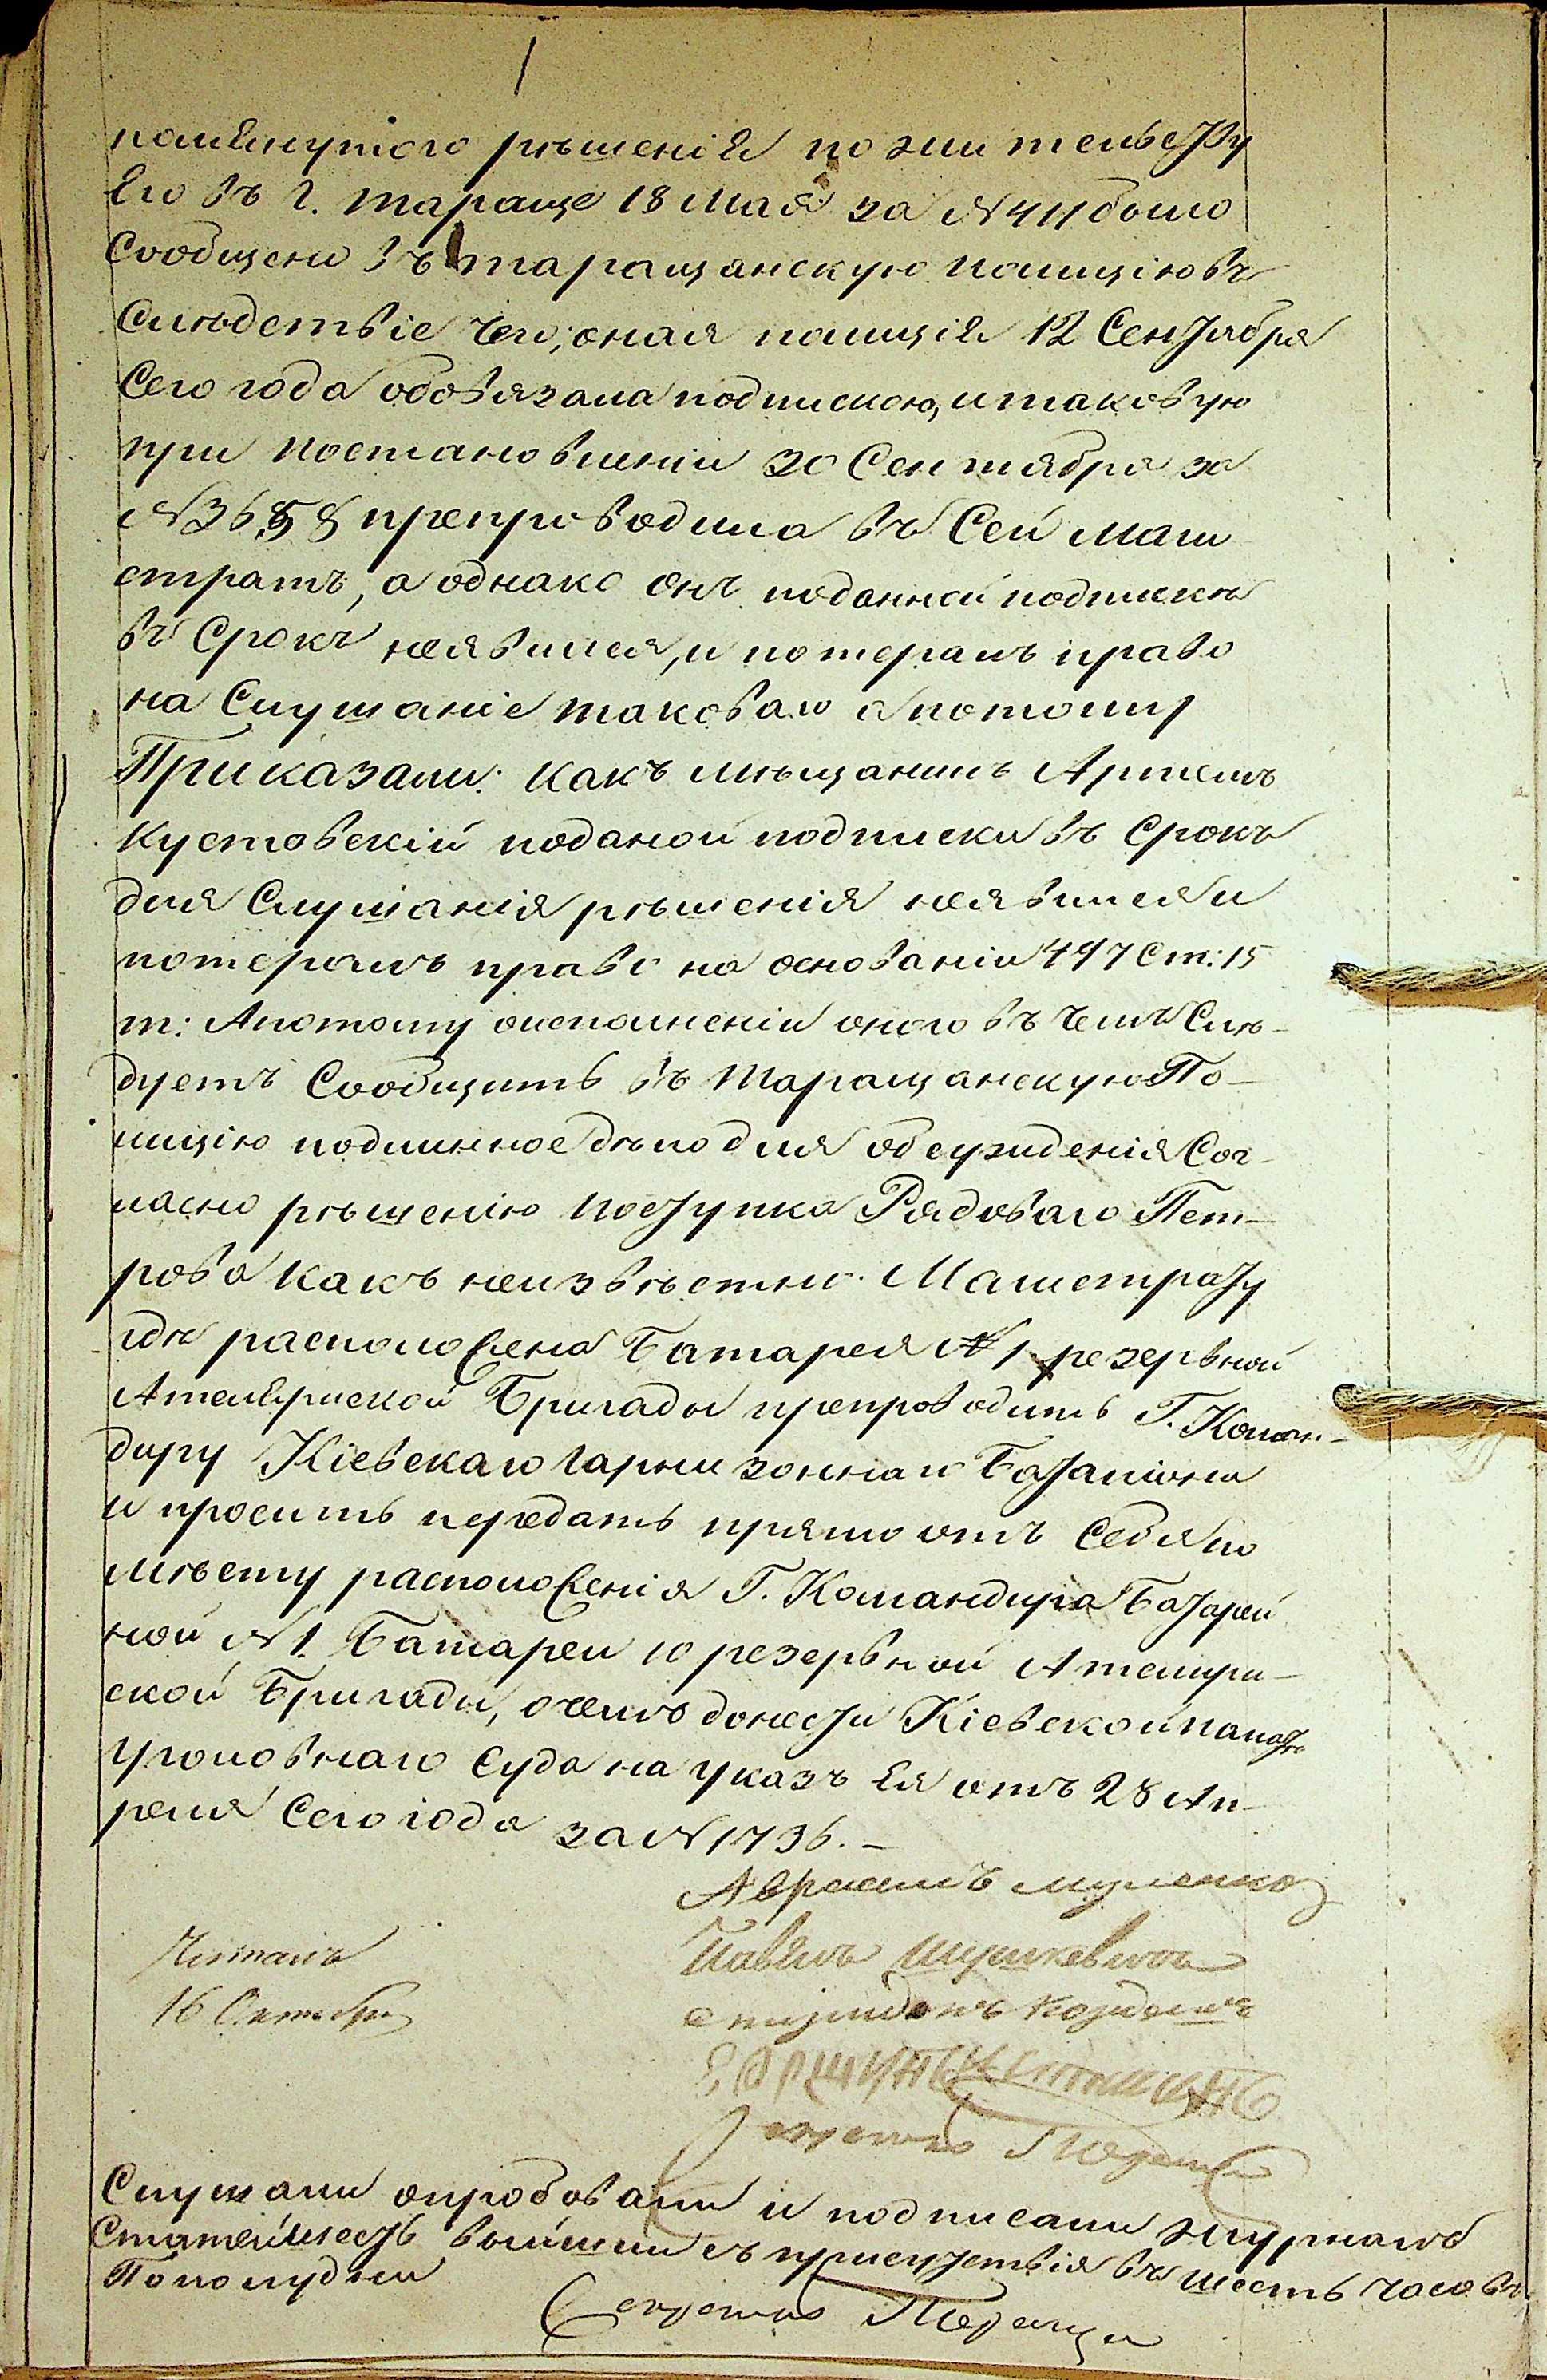 помянутого рѣшенія по жительству
Его въ г. Тараще 18 Мая за №411 было
Сообщено въ таращанскую полицію въ
Слѣдствіе чего, оная полиція 12 Сентября
Сего года обовязала подпискою, и таковую
при постановленіи 30 Сентября за
№3658 препроводила въ Сей маги
стратъ, а однако онъ поданной подписки
въ Срокъ неявился, и потерялъ право
на Слушаніе таковаго а потому
Приказали: какъ мѣщанинъ Артемъ
Кустовскій поданой подписки въ Срокъ
для Слушанія рѣшенія неявился и
потерялъ право на основаніи 447 Ст: 15
т: А потому оисполненіи оного въ чемъ Слѣ-
дуетъ Сообщить въ Таращанскую По-
лицію подлинное дѣло для обсужденія Сог-
ласно рѣшенію поступка Рядоваго Пет-
рова какъ неизвѣстно Магистрату
гдѣ расположена Батарея №1 резервной
Ателерисской Бригады препроводить Г. Коман-
диру Кіевскаго гарнизоннаго Баталіона
и просить передать прямо отъ Себя по
мѣсту расположенія Г. Командира Батарей
ной №1 Батареи 10 резервной Ателири-
ской Бригады, очемъ донести Кіевской палатѣ
уголовнаго Суда на указъ Ея отъ 28 Ап-
реля Сего года за №1736.-
Аврамъ
Павелъ
Читалъ
16 Октября
Секретарь
Слушали опробовали и подписали журналъ
Статей шесть вышли съ присутствія въ шесть часовъ
Пополудни
Секретарь